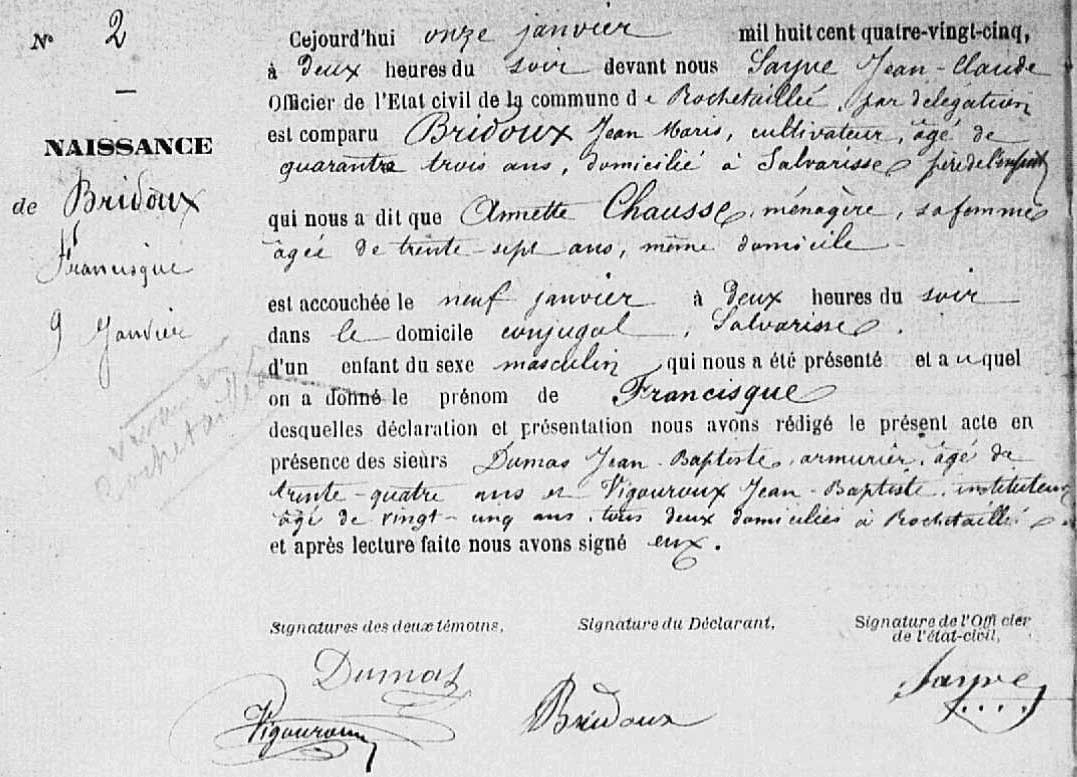 N° 2
NAISSANCE
de Bridoux
Francisque
9 Janvier
Rochetaillée
Cejourd'hui onze janvier mil huit cent quatre-vingt-cinq,
à deux heures du soir devant nous Sayve Jean-Claude
Officier de l'Etat civil de la commune de Rochetaillée, par délégation
est comparu Bridoux Jean Marie, cultivateur, âgé de
quarante trois ans, domicilié à Salvarisse, père de l'enfant
qui nous a dit que Annette Chausse, ménagère, sa femme
âgée de trente-sept ans, même domicile
est accouchée le neuf janvier à deux heures du soir
dans le domicile conjugal, Salvarisse.
d'un enfant du sexe masculin qui nous a été présenté et auquel
on a donné le prénom de Francisque
desquelles déclaration et présentation nous avons rédigé le présent acte en
présence des sieurs Dumas Jean-Baptiste, armurier, âgé de
trente-quatre ans et Vigouroux Jean-Baptiste, instituteur
âgé de vingt-cinq ans, tous deux domiciliés à Rochetaillée.
et après lecture faite nous avons signé eux.
Signatures des deux témoins, Signature du Déclarant, Signature de l'Officier
de l'état-civil,
Dumas
Vigouroux Bridoux Sayve